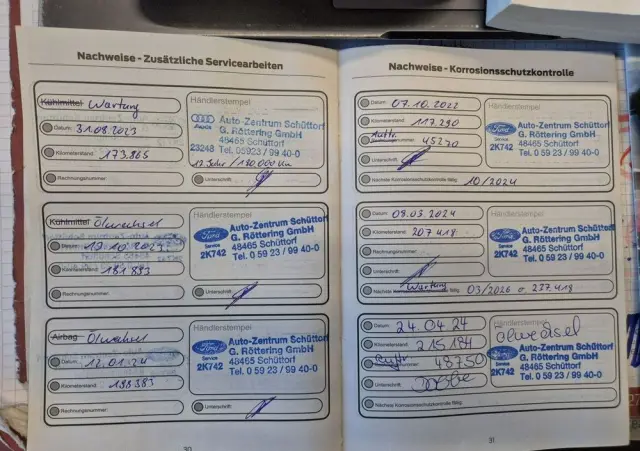 Nachweise - Zusätzliche Servicearbeiten
Kühlmittel Wartung
Datum: 31.08.2023
Kilometerstand: 173.865
Rechnungsnummer:
Händlerstempel
Audi
23248
Auto-Zentrum Schüttorf
G. Röttering GmbH
48465 Schüttorf
Tel. 05923 / 99 40-0
12 Jahr / 180.000 km
Unterschrift:
Kühlmittel Ölwechsel
Datum:
Kilometerstand: 181 893
Rechnungsnummer:
Händlerstempel
Ford
Service
2K742
Auto-Zentrum Schüttorf
G. Röttering GmbH
48465 Schüttorf
Tel. 0 59 23 / 99 40-0
Unterschrift:
Airbag Ölwechsel
Datum: 12.01.24
Kilometerstand: 198383
Rechnungsnummer:
Händlerstempel
Ford
Service
2K742
Auto-Zentrum Schüttorf
G. Röttering GmbH
48465 Schüttorf
Tel. 0 59 23 / 99 40-0
Unterschrift:
30
Nachweise - Korrosionsschutzkontrolle
Datum: 07.10.2022
Kilometerstand: 117.290
Auftr. 45270
Unterschrift:
Händlerstempel
Ford
Service
2K742
Auto-Zentrum Schüttorf
G. Röttering GmbH
48465 Schüttorf
Tel. 0 59 23 / 99 40-0
Nächste Korrosionsschutzkontrolle fällig: 10/2024
Datum: 08.03.2024
Kilometerstand: 207 418
Rechnungsnummer:
Unterschrift:
Händlerstempel
Ford
Service
2K742
Auto-Zentrum Schüttorf
G. Röttering GmbH
48465 Schüttorf
Tel. 0 59 23 / 99 40-0
Nächste Wartung fällig: 03/2026 o. 237.418
Datum: 24.04.24
Kilometerstand: 215184
Auftr. 48750
Unterschrift:
Händlerstempel
Ölwechsel
Ford
Service
2K742
Auto-Zentrum Schüttorf
G. Röttering GmbH
48465 Schüttorf
Tel. 0 59 23 / 99 40-0
Nächste Korrosionsschutzkontrolle fällig:
31